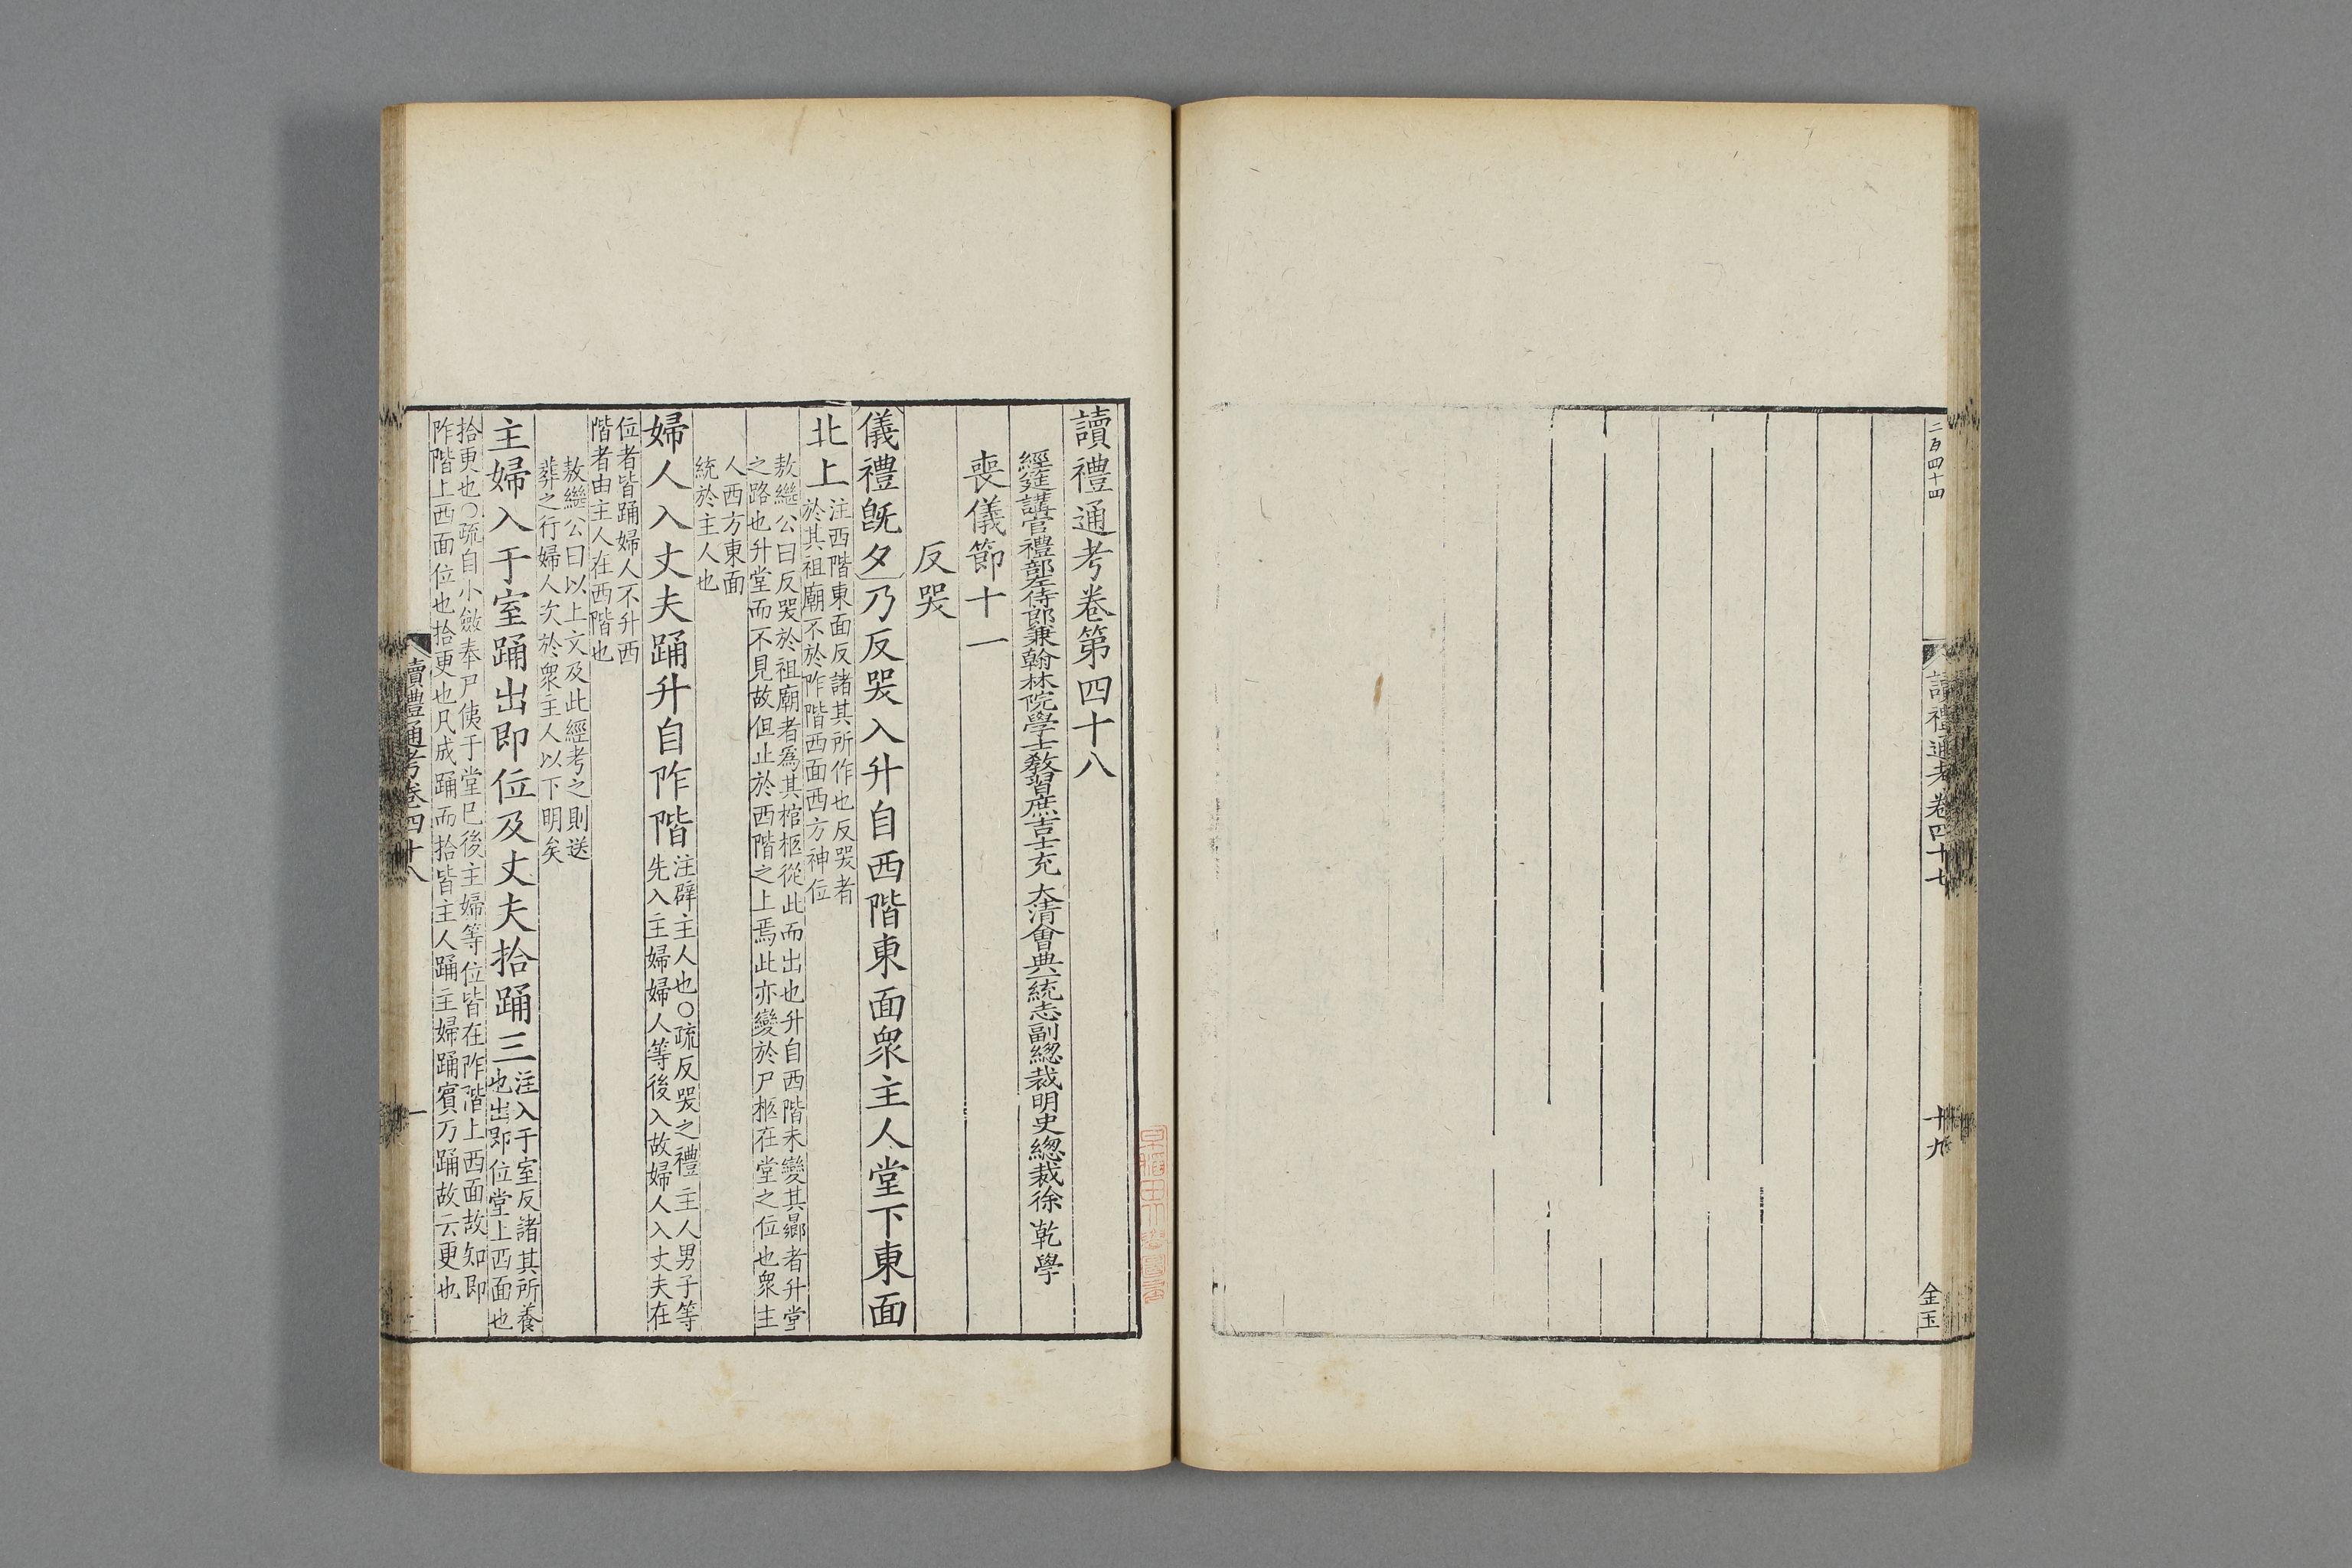 二百四十四
讀禮通考卷四十七
十九
金玉
讀禮通考卷第四十八
經筵講官禮部左侍郎兼翰林院學士教習庶吉士充 大清會典一統志副總裁明史總裁徐乾學
喪儀節十一
反哭
儀禮旣夕乃反哭入升自西階東面衆主人堂下東面
北上
注西階東面反諸其所作也反哭者
於其祖廟不於阼階西面西方神位
敖繼公曰反哭於祖廟者爲其棺柩從此而出也升自西階未變其曏者升堂
之路也升堂而不見故但止於西階之上焉此亦變於尸柩在堂之位也衆主
人西方東面
統於主人也
婦人入丈夫踊升自阼階
注辟主人也○疏反哭之禮主人男子等
先入主婦婦人等後入故婦人入丈夫在
位者皆踊婦人不升西
階者由主人在西階也
敖繼公曰以上文及此經考之則送
葬之行婦人次於衆主人以下明矣
主婦入于室踊出即位及丈夫拾踊三
注入于室反諸其所養
也出即位堂上西面也
拾更也○疏自小斂奉尸侇于堂已後主婦等位皆在阼階上西面故知即
阼階上西面位也拾更也凡成踊而拾皆主人踊主婦踊賓乃踊故云更也
讀禮通考卷四十八
一
早稻田大學圖書